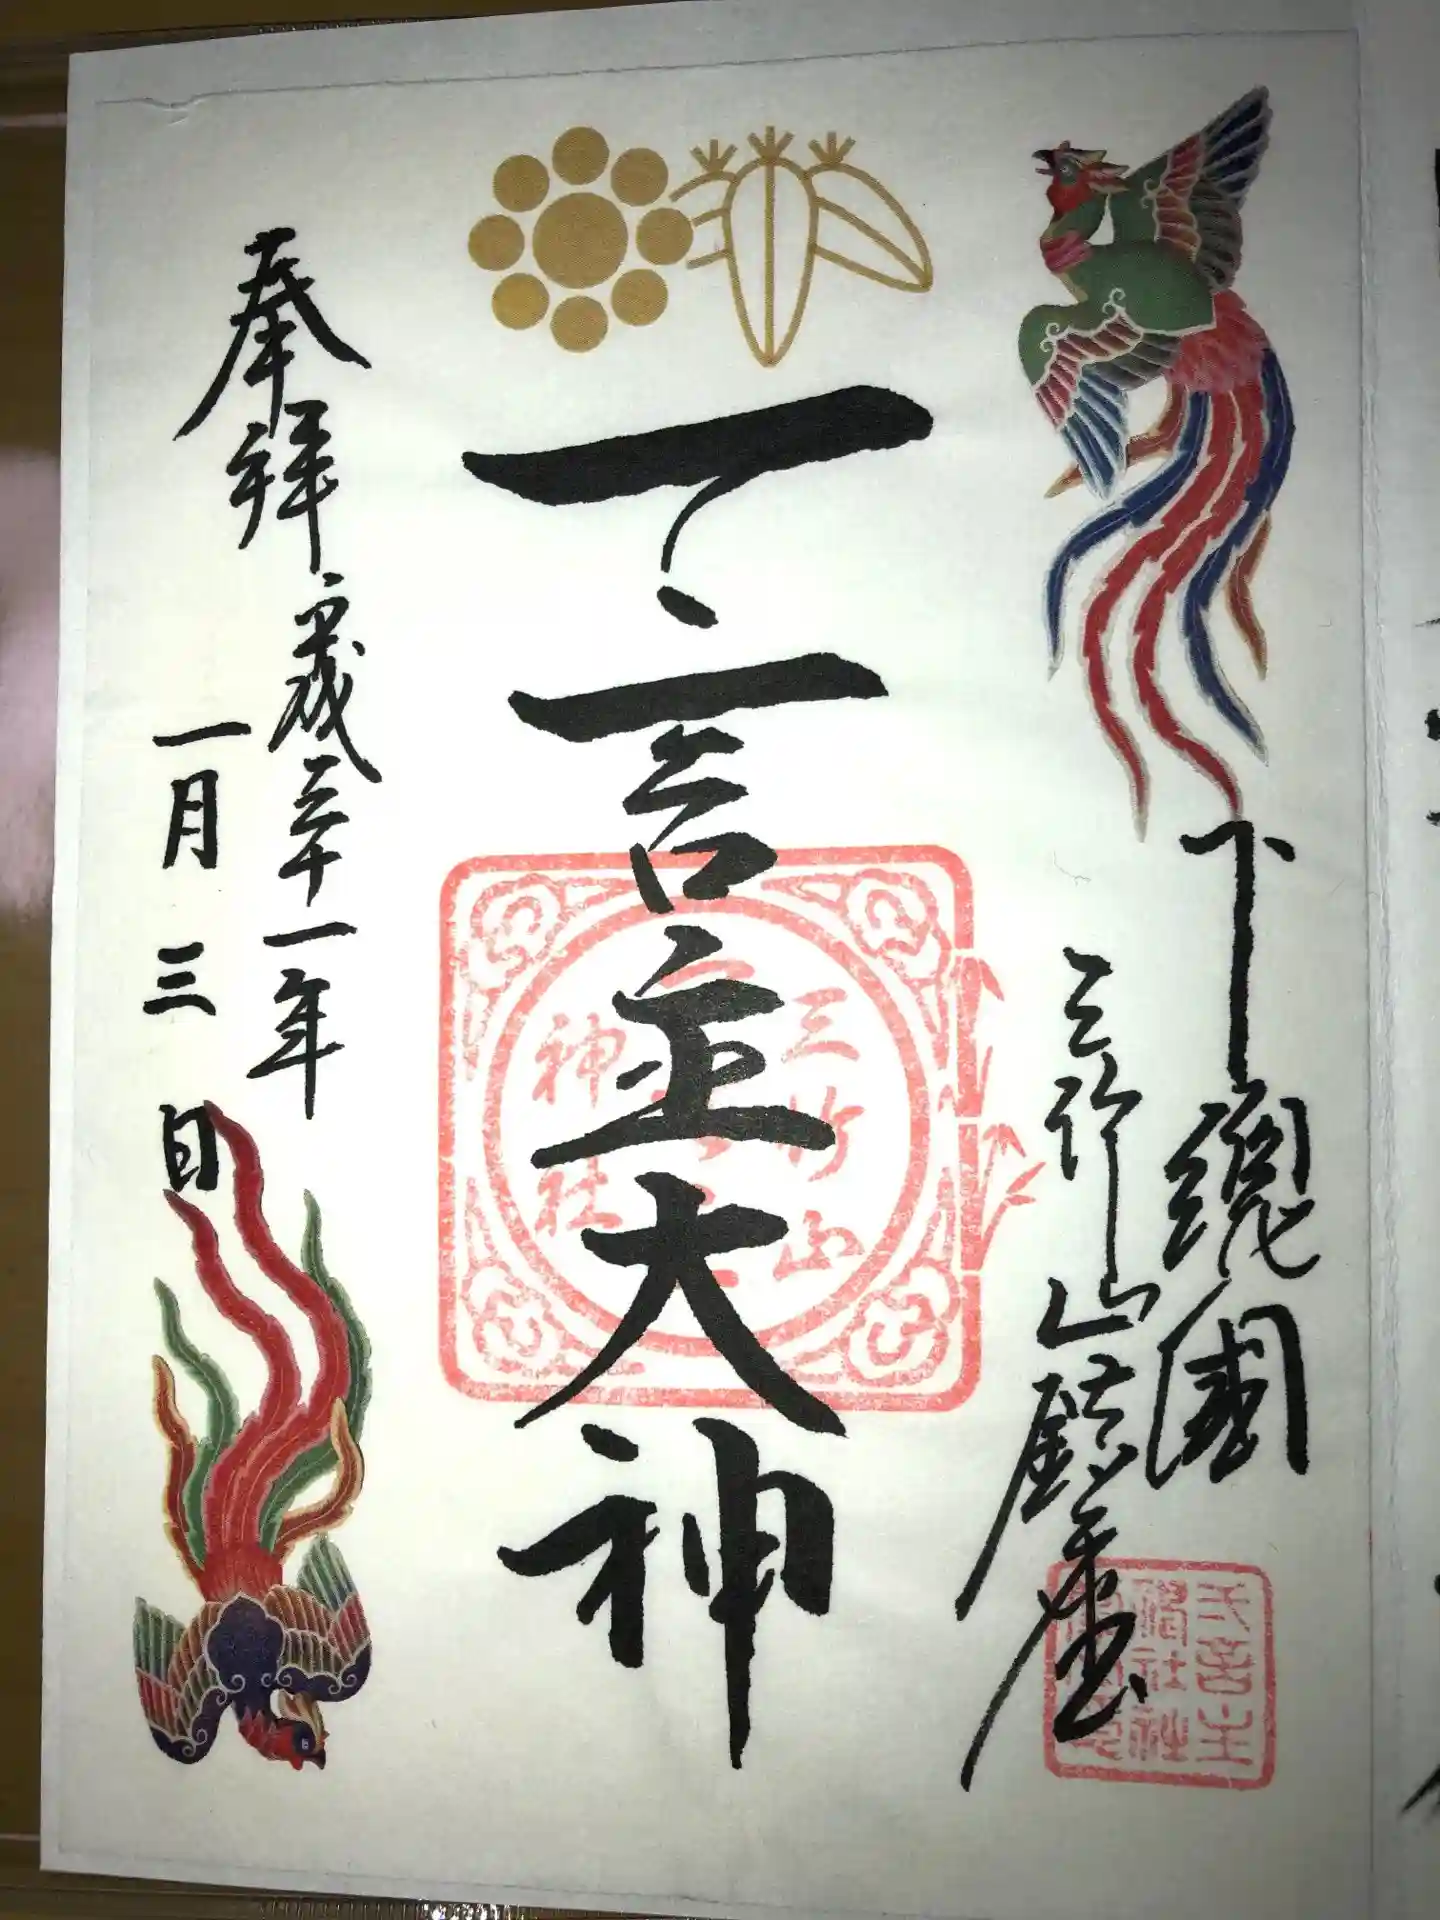 下總國
三竹山鎮座
一言主大神
奉拝
平成三十一年
一月三日
三竹山
神社
一言主
神社社